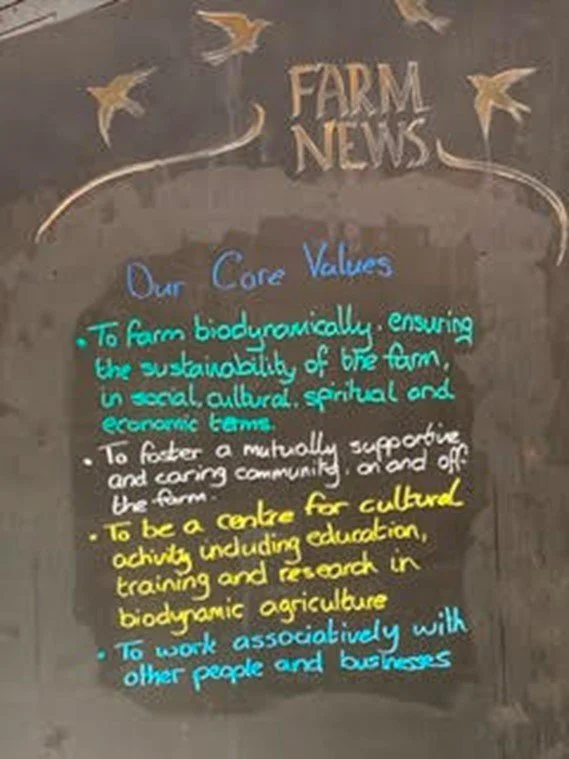 FARM
NEWS
Our Core Values
• To farm biodynamically, ensuring
the sustainability of the farm,
in social, cultural, spiritual and
economic terms.
• To foster a mutually supportive
and caring community, on and off
the farm.
• To be a centre for cultural
activity including education,
training and research in
biodynamic agriculture
• To work associatively with
other people and businesses